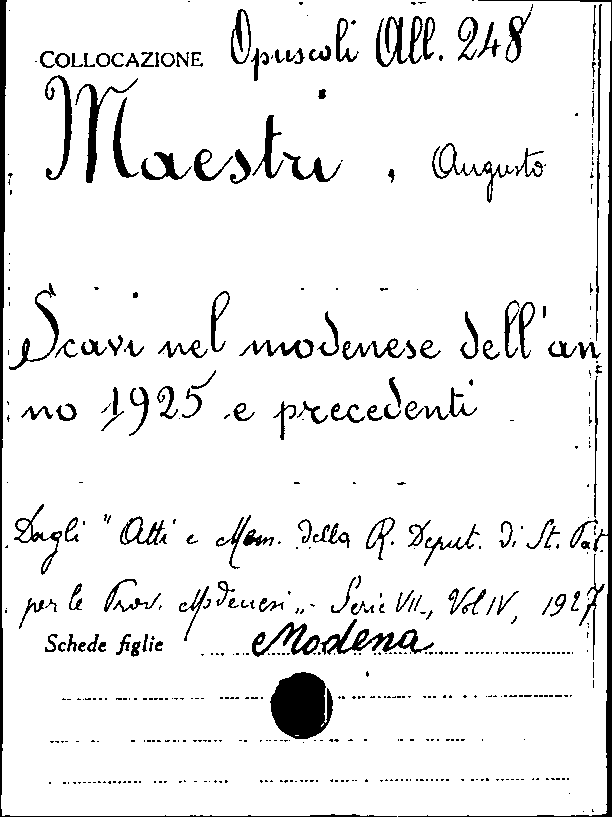 COLLOCAZIONE Opuscoli All. 248
Maestri, Augusto
Scavi nel modenese dell'an
no 1925 e precedenti
Dagli "Atti e Mem. della R. Deput. di St. Pat.
per le Prov. Modenesi„ - Serie VII-, Vol IV, 1927
Schede figlie Modena